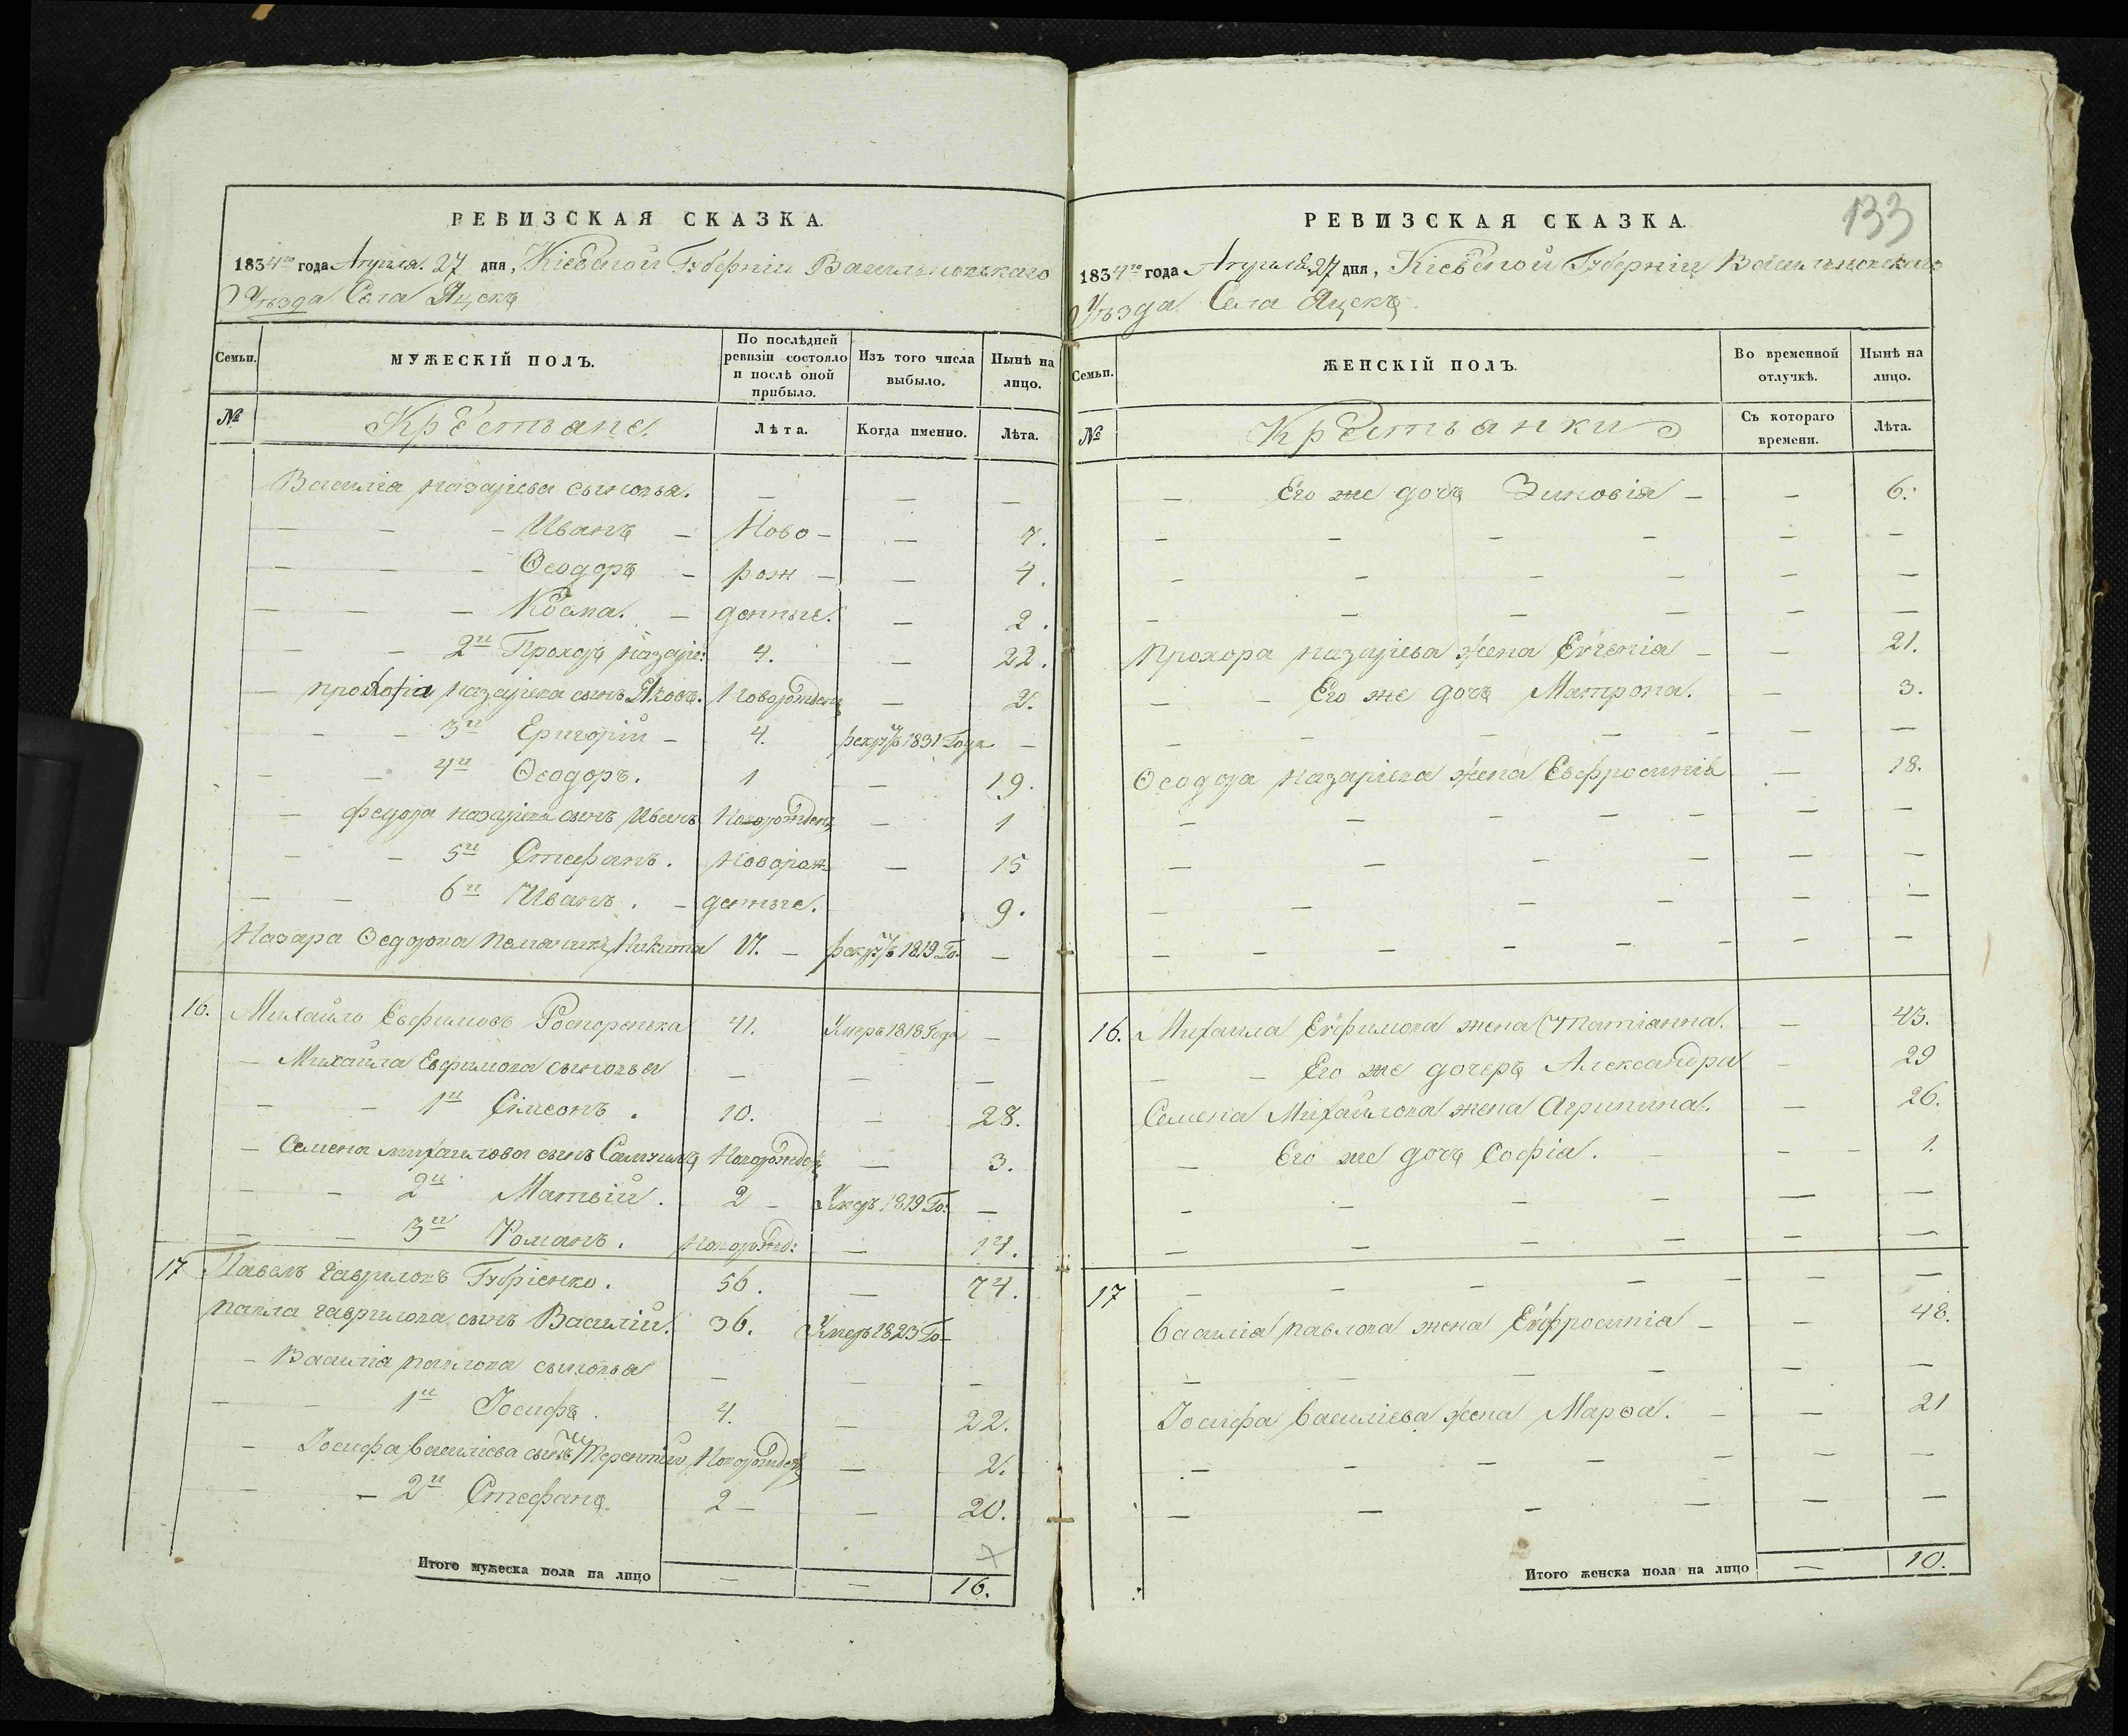 РЕВИЗСКАЯ СКАЗКА.
1834го года Апреля. 27 дня, Кіевской Губерніи Васильковскаго
Уѣзда Села Яцекъ
Семьи. МУЖЕСКІЙ ПОЛЪ. По послѣдней ревизіи состояло и послѣ оной прибыло. Изъ того числа выбыло. Нынѣ на лицо.
№ Крестьане. Лѣта. Когда именно. Лѣта.
Василіа назаріева сыновьа. — — —
— — — Иванъ — Ново — — 7.
— — — Ѳеодоръ — рож — — 4.
— — — Косма. — денные. — 2.
— — 2й Прохоръ назаріе: 4. — 22.
— прокофіа назаріева сынъ Яковъ. Новорожденъ — 2.
— — 3й Григорій — 4. рекрутъ 1831 Года —
— — 4й Ѳеодоръ. 1 — 19.
— федора назаріева сынъ Иванъ Новорожденъ — 1
— — 5й Стефанъ. Новорож — 15
— — 6й Иванъ. — денные. 9.
Назара Ѳедорова племяникъ Никита 17. — рекрутъ 1819 Го. —
16. Михайло Евфимовъ 41. Умеръ 1818 Года —
— Михайла Евфимова сыновьа — — —
— — 1й Сімеонъ. 10. — 28.
— Семена михаилова сынъ Самуилъ Новорожденъ — 3.
— — 2й Матвій. 2 — Умеръ 1819 Го: —
— — 3й Романъ. Новорожд: — 14.
17 Павелъ гавриловъ Губріенко. 56. — 74.
павла гаврилова сынъ Василій. 36. Умеръ 1823 Го —
— Василіа павлова сыновьа — — —
— — 1й Іосифъ. 4. — 22.
— Іосифа василіева сынъ Терентій Новорожденъ — 2.
— — 2й Стефанъ. 2 — — 20.
Итого мужеска пола на лицо — — 16.
133
РЕВИЗСКАЯ СКАЗКА.
1834го года Апреля 27 дня, Кіевской Губерніи Васильковскаго
Уѣзда Села Яцекъ
Семьи. ЖЕНСКІЙ ПОЛЪ. Во временной отлучкѣ. Нынѣ на лицо.
№ Крестьанки Съ котораго времени. Лѣта.
— Его же дочъ Зиновія — — 6.
— — — — — —
— — — — — —
— — — — — —
Прохора назаріева жена Евгеніа — — 21.
— — Его же дочъ Матрона. — 3.
— — — — — —
Ѳеодора назаріева жена Евфросиніа — 18.
— — — — — —
— — — — — —
— — — — — —
— — — — — — —
16. Михаила Евфимова жена Татіанна. — 45.
— — Его же дочеръ Александра — 29
Семена Михайлова жена Агрипина. — 26.
— Его же дочъ Софіа. — — 1.
— — — — — —
— — — — — —
17 — — — — — —
василіа павлова жена Евфросиніа — — 48.
— — — — — —
Іосифа василіева жена Марѳа. — — 21
— — — — — — —
— — — — — —
Итого женска пола на лицо — 10.